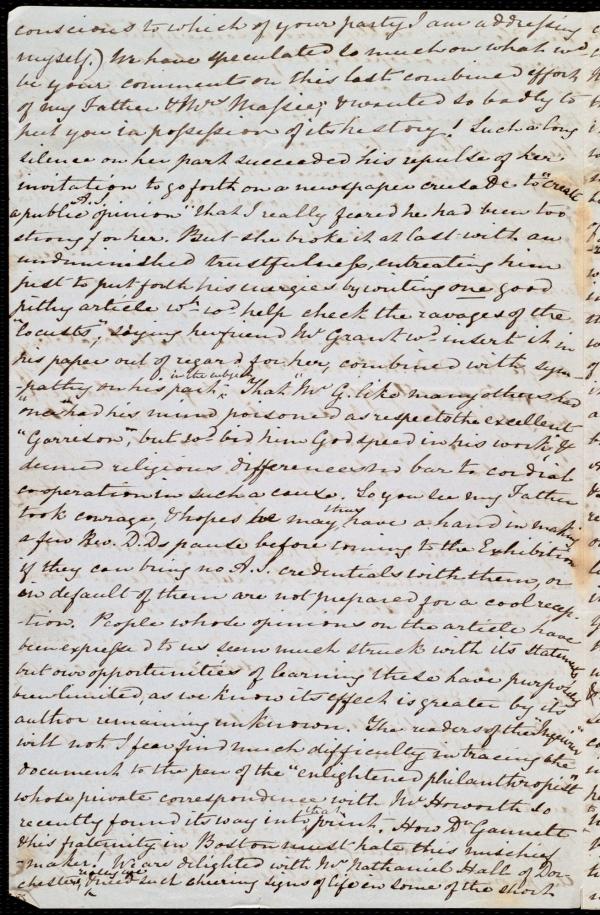 conscious to which of your party I am addressing
myself.) We have speculated so much on what wd
be your comment on this last combined effort
of my Father & Mrs Massie; & wanted so badly to
put you in possession of its history! Such a long
silence on her part succeeded his repulse of her
invitation to go forth on a newspaper crusade to "create
a public A.S. opinion" that I really feared he had been too
strong for her. But she broke it at last with an
undiminished trustfulness, entreating him
just to put forth his energies by writing one good
pithy article wh wd help check the ravages of the
"locusts", saying her friend Mr Grant wd insert it in
his paper out of regard for her, combined with sym-
-pathy on his part in the subject. That "Mr G. like many others had
"once" had his mind poisoned as respects the excellent
"Garrison", but wd bid him God speed in his work, &
deemed religious differences no bar to cordial
cooperation in such a cause. So you see my Father
took courage, & hopes he may thus have a hand in making
a few Rev. D.Ds pause before coming to the Exhibition
if they can bring no A.S. credentials with them, or
in default of them are not prepared for a cool recep-
tion. People whose opinions on the article have
been expressed to us seem much struck with its statements,
but our opportunities of learning these have purposely
been limited, as we know its effect is greater by its
author remaining unknown. The readers of the "Inquirer"
will not I fear find much difficulty in tracing the
document to the pen of the "enlightened philanthropist"
whose private correspondence with Mr Howorth so
recently found its way into that print. How Dr Gannett
& his fraternity in Boston must hate this mischief
-maker! We are delighted with Mr Nathaniel Hall of Dor-
chester, such cheering signs of life in some of the short